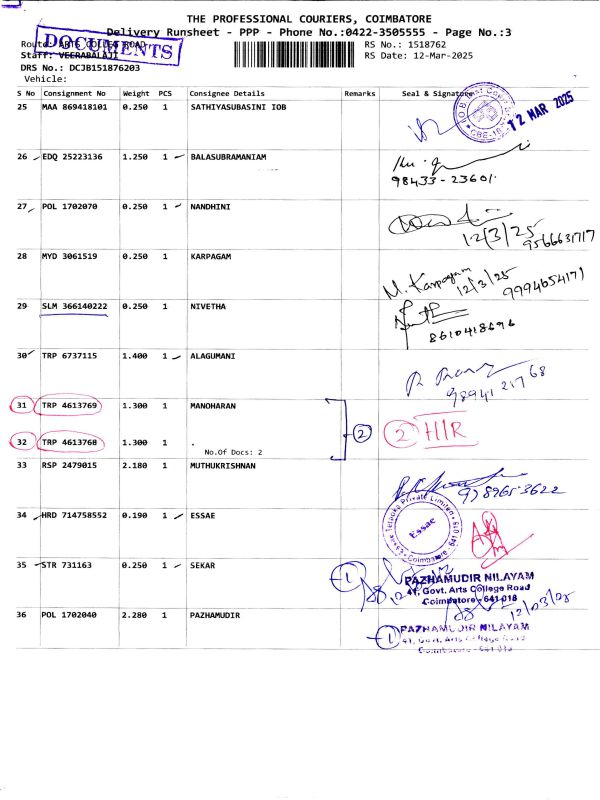 THE PROFESSIONAL COURIERS, COIMBATORE
Delivery Runsheet - PPP - Phone No.:0422-3505555 - Page No.:3
Route: ARTS COLLEGE ROAD
DOCUMENTS
RS No.: 1518762
Staff: VEERABALAJI
RS Date: 12-Mar-2025
DRS No.: DCJB151876203
Vehicle:
S No Consignment No Weight PCS Consignee Details Remarks Seal & Signature
25 MAA 869418101 0.250 1 SATHIYASUBASINI IOB
12 MAR 2025
26 EDQ 25223136 1.250 1 BALASUBRAMANIAM
98433-23601
27 POL 1702070 0.250 1 NANDHINI
12/3/25
9566631717
28 MYD 3061519 0.250 1 KARPAGAM
M. Karpagam
12/3/25
9994654171
29 SLM 366140222 0.250 1 NIVETHA
8610418696
30 TRP 6737115 1.400 1 ALAGUMANI
98941 21768
31 TRP 4613769 1.300 1 MANOHARAN
2
2 HIR
32 TRP 4613768 1.300 1 .
No.Of Docs: 2
33 RSP 2479015 2.180 1 MUTHUKRISHNAN
9789653622
34 HRD 714758552 0.190 1 ESSAE
Essae
Coimbatore - 641 018
35 STR 731163 0.250 1 SEKAR
1
PAZHAMUDIR NILAYAM
41, Govt. Arts College Road
Coimbatore - 641 018
12/03/25
36 POL 1702040 2.280 1 PAZHAMUDIR
1
PAZHAMUDIR NILAYAM
41, Govt. Arts College Road
Coimbatore - 641 018